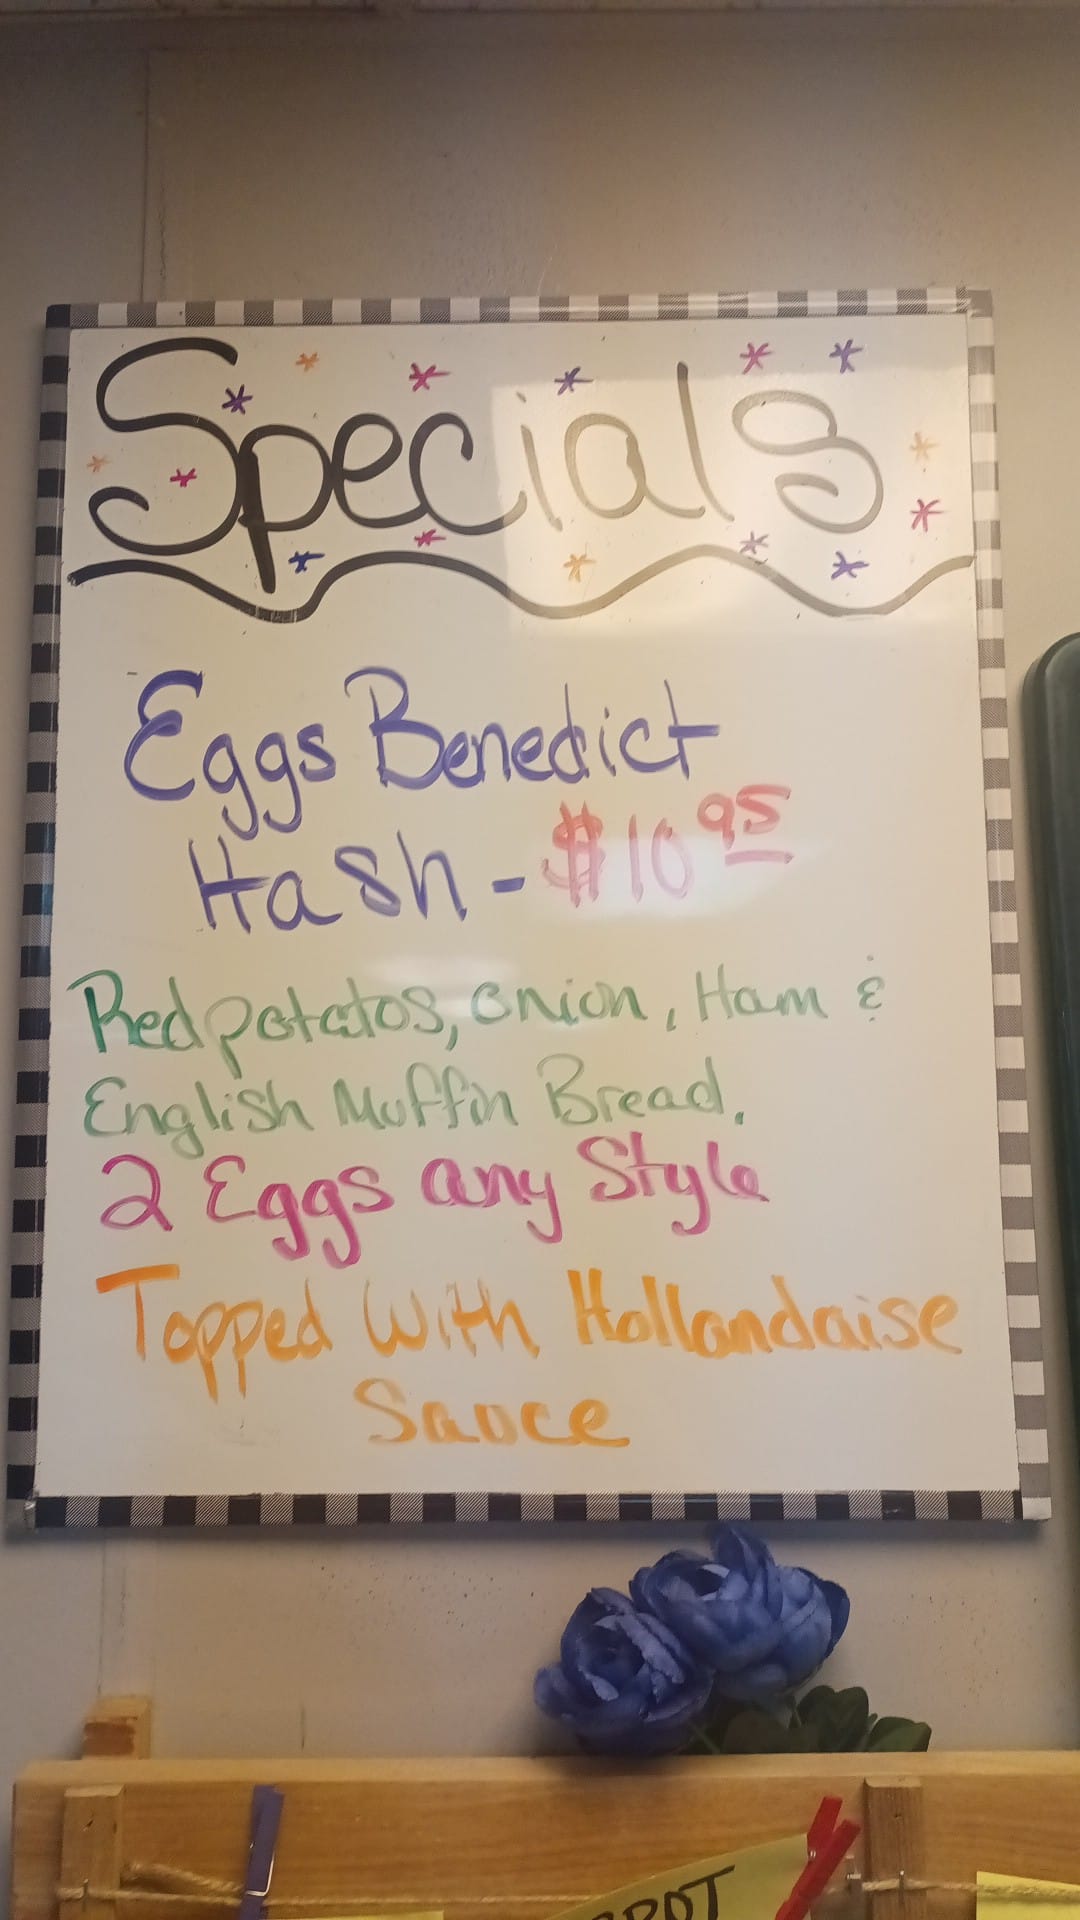 Specials
Eggs Benedict
Hash - $10.95
Red potatos, onion, Ham &
English Muffin Bread.
2 Eggs any Style
Topped With Hollandaise
Sauce